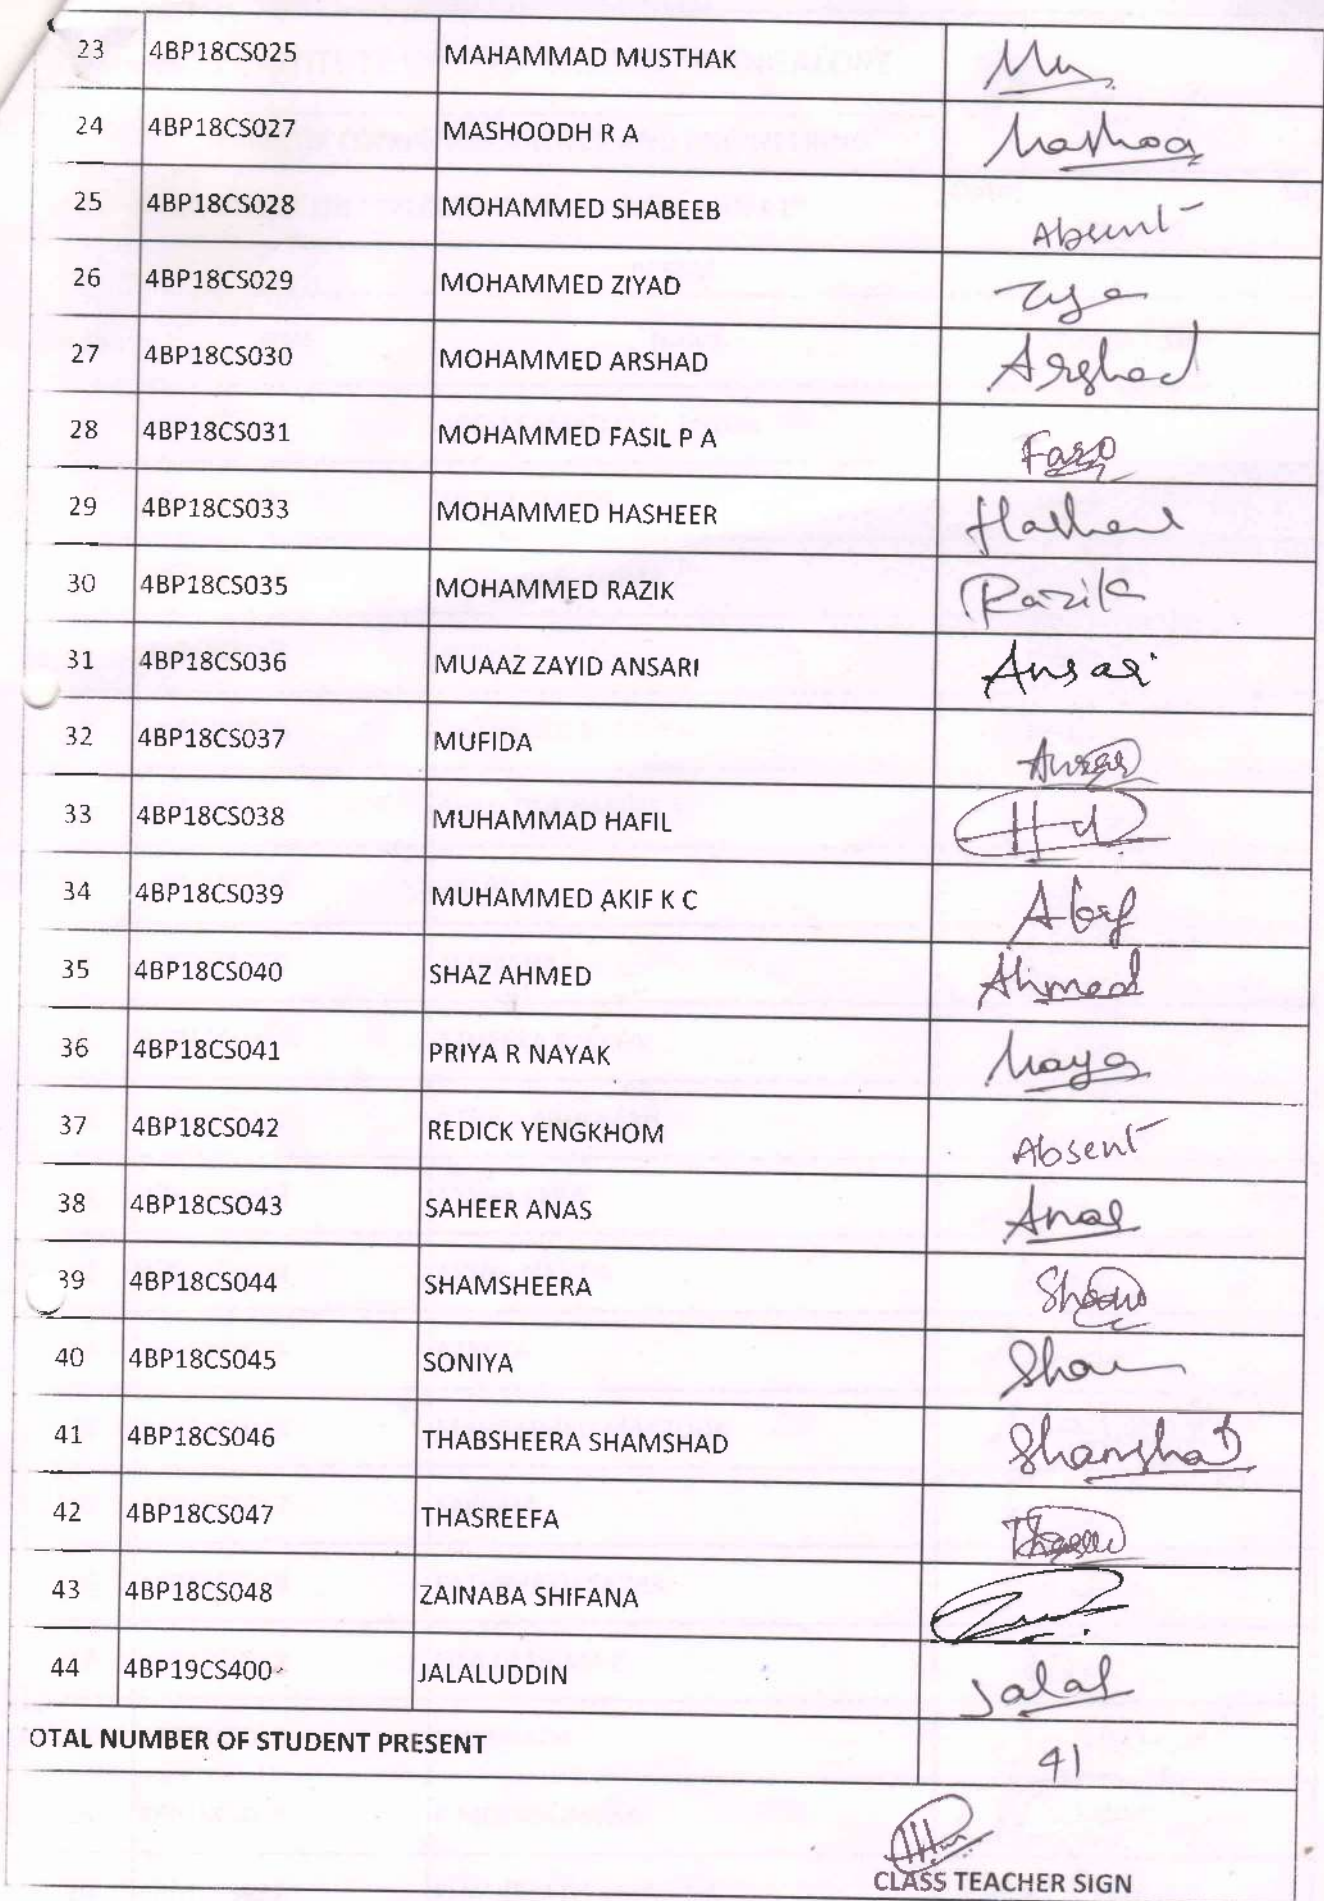 23 4BP18CS025 MAHAMMAD MUSTHAK
24 4BP18CS027 MASHOODH R A
25 4BP18CS028 MOHAMMED SHABEEB Absent
26 4BP18CS029 MOHAMMED ZIYAD
27 4BP18CS030 MOHAMMED ARSHAD Arshad
28 4BP18CS031 MOHAMMED FASIL P A
29 4BP18CS033 MOHAMMED HASHEER
30 4BP18CS035 MOHAMMED RAZIK Razik
31 4BP18CS036 MUAAZ ZAYID ANSARI Ansari
32 4BP18CS037 MUFIDA
33 4BP18CS038 MUHAMMAD HAFIL
34 4BP18CS039 MUHAMMED AKIF K C Akif
35 4BP18CS040 SHAZ AHMED Ahmed
36 4BP18CS041 PRIYA R NAYAK
37 4BP18CS042 REDICK YENGKHOM Absent
38 4BP18CSO43 SAHEER ANAS Anas
39 4BP18CS044 SHAMSHEERA
40 4BP18CS045 SONIYA
41 4BP18CS046 THABSHEERA SHAMSHAD
42 4BP18CS047 THASREEFA
43 4BP18CS048 ZAINABA SHIFANA
44 4BP19CS400 JALALUDDIN Jalal
OTAL NUMBER OF STUDENT PRESENT 41
CLASS TEACHER SIGN